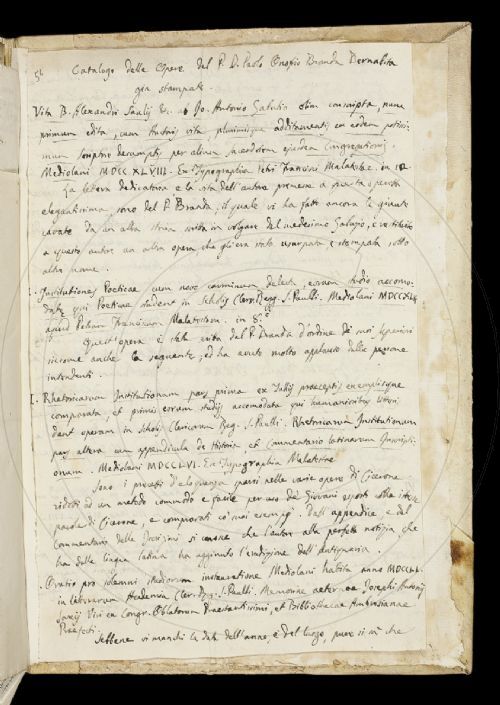 Catalogo delle Opere del P. D. Paolo Onofrio Branda Bernabita
già stampate.
Vita B. Alexandri Saulij &c. a Jo. Antonio Gabutio olim conscripta, nunc
primum edita, cum Autoris vita plurimisque additamentis ex eodem potissi-
mum Scriptore decerptis per alium sacerdotem ejusdem Congregationis.
Mediolani MDCCXLVIII. Ex Typographia Petri Francisci Malatestae. in 12.
La lettera dedicatoria e la vita dell'autore premesse a questa operetta
elegantissima, sono del P. Branda, il quale vi ha fatto ancora le giunte
cavate da un altra scritta in volgare del medesimo Gabuzio, e restituito
a questo autore un altra opera, che gli era stata usurpata e stampata sotto
altro nome.
Institutiones Poeticae cum novo carminum delectu, eorum studio accomo-
datae qui Poeticae student in Scholis Cler. Regg. S. Paulli. Mediolani
apud Petrum Franciscum Malatestam. in 8.º
Quest'opera è stata scritta dal P. Branda d'ordine de' suoi superiori
siccome anche la seguente, ed ha avuto molto applauso dalle persone
intendenti.
I. Rhetoricarum Institutionum pars prima ex Tullij praeceptis exemplisque
comparata, et primis eorum studijs accomodata qui humanioribus litteris
dant operam in Scholis Clericorum Reg. S. Paulli. Rhetoricarum Institutionum
pars altera cum appendicula de Historia, et Commentario latinarum Inscripti-
onum. Mediolani MDCCLVI. Ex Typographia Malatestae
Sono i precetti d'eloquenza sparsi nelle varie opere di Cicerone
ridotti ad un metodo commodo e facile per uso de' Giovani esposti colle istesse
parole di Cicerone, e comprovati co' suoi esempj. Dall'appendice e dal
Commentario delle Iscrizioni si conosce che l'autore alla perfetta notizia, che
ha della lingua latina ha aggiunto l'erudizione dell'Antiquaria.
Oratio pro solemni studiorum instauratione Mediolani habita anno
in litterarum Academia Cler. Regg. S. Paulli. Memoriae aeternae Josephi Antonij
Saxij Viri ex Congr. Oblatorum Praestantissimi, et Bibliothecae Ambrosianae
Praefecti.
Sebbene vi manchi la data dell'anno, e del luogo, pure si sà che